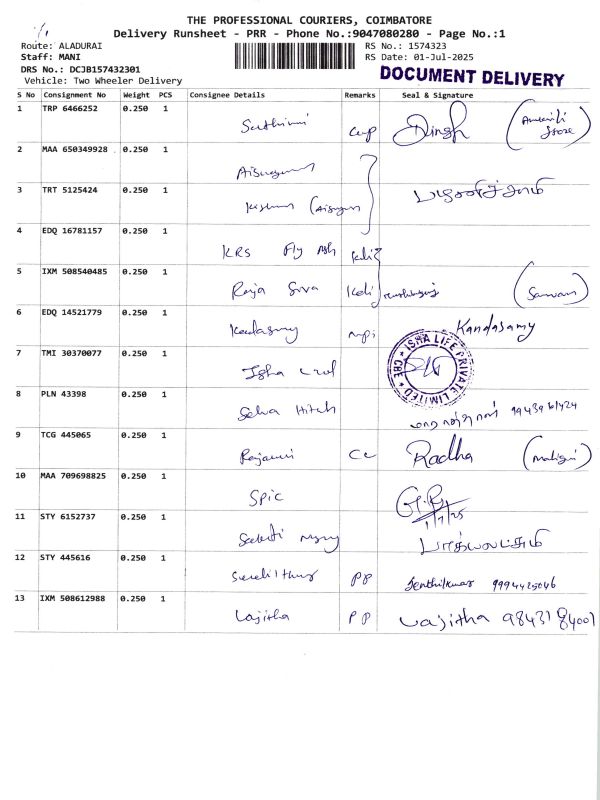 THE PROFESSIONAL COURIERS, COIMBATORE
Delivery Runsheet - PRR - Phone No.:9047080280 - Page No.:1
Route: ALADURAI
RS No.: 1574323
Staff: MANI
RS Date: 01-Jul-2025
DRS No.: DCJB157432301
Vehicle: Two Wheeler Delivery
DOCUMENT DELIVERY
S No Consignment No Weight PCS Consignee Details Remarks Seal & Signature
1 TRP 6466252 0.250 1
2 MAA 650349928 0.250 1
3 TRT 5125424 0.250 1
4 EDQ 16781157 0.250 1 KRS Fly Ash
5 IXM 508540485 0.250 1 Raja Siva
6 EDQ 14521779 0.250 1 Kandasamy
7 TMI 30370077 0.250 1 Isha
ISHA LIFE PRIVATE LIMITED CBE
8 PLN 43398 0.250 1 Selva
9 TCG 445065 0.250 1 CC Radha
10 MAA 709698825 0.250 1 SPIC G.R 1/7/25
11 STY 6152737 0.250 1
12 STY 445616 0.250 1 PP Senthilkumar 9994425046
13 IXM 508612988 0.250 1 Vajitha PP Vajitha 9843184001